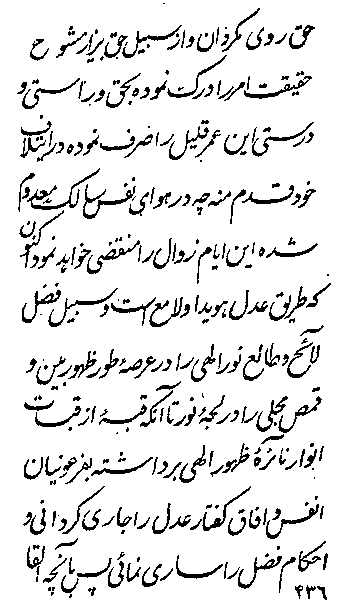 حق روی مگردان و از سبیل حق بیزار مشو ح
حقیقت امر را درک نموده بحق و براستی و
درستی این عمر قلیل را صرف نموده در ایتلاف
خود قدم منه چه در هوای نفس سالک معدوم
شده این ایام زوال را منقضی خواهد نمود اکنون
که طریق عدل هویدا و لامع است و سبیل فضل
لائح و طالع نور الهی را در عرصهٔ طور ظهور بین و
قمص مجلی را در لجهٔ نور تا آنکه قبسهٔ از قبسات
انوار نائرهٔ ظهور الهی برداشته بفرعونیان
انفس و افاق گفتار عدل را جاری گردانی و
احکام فضل را ساری نمائی پس بآنچه القا
۴۳۶